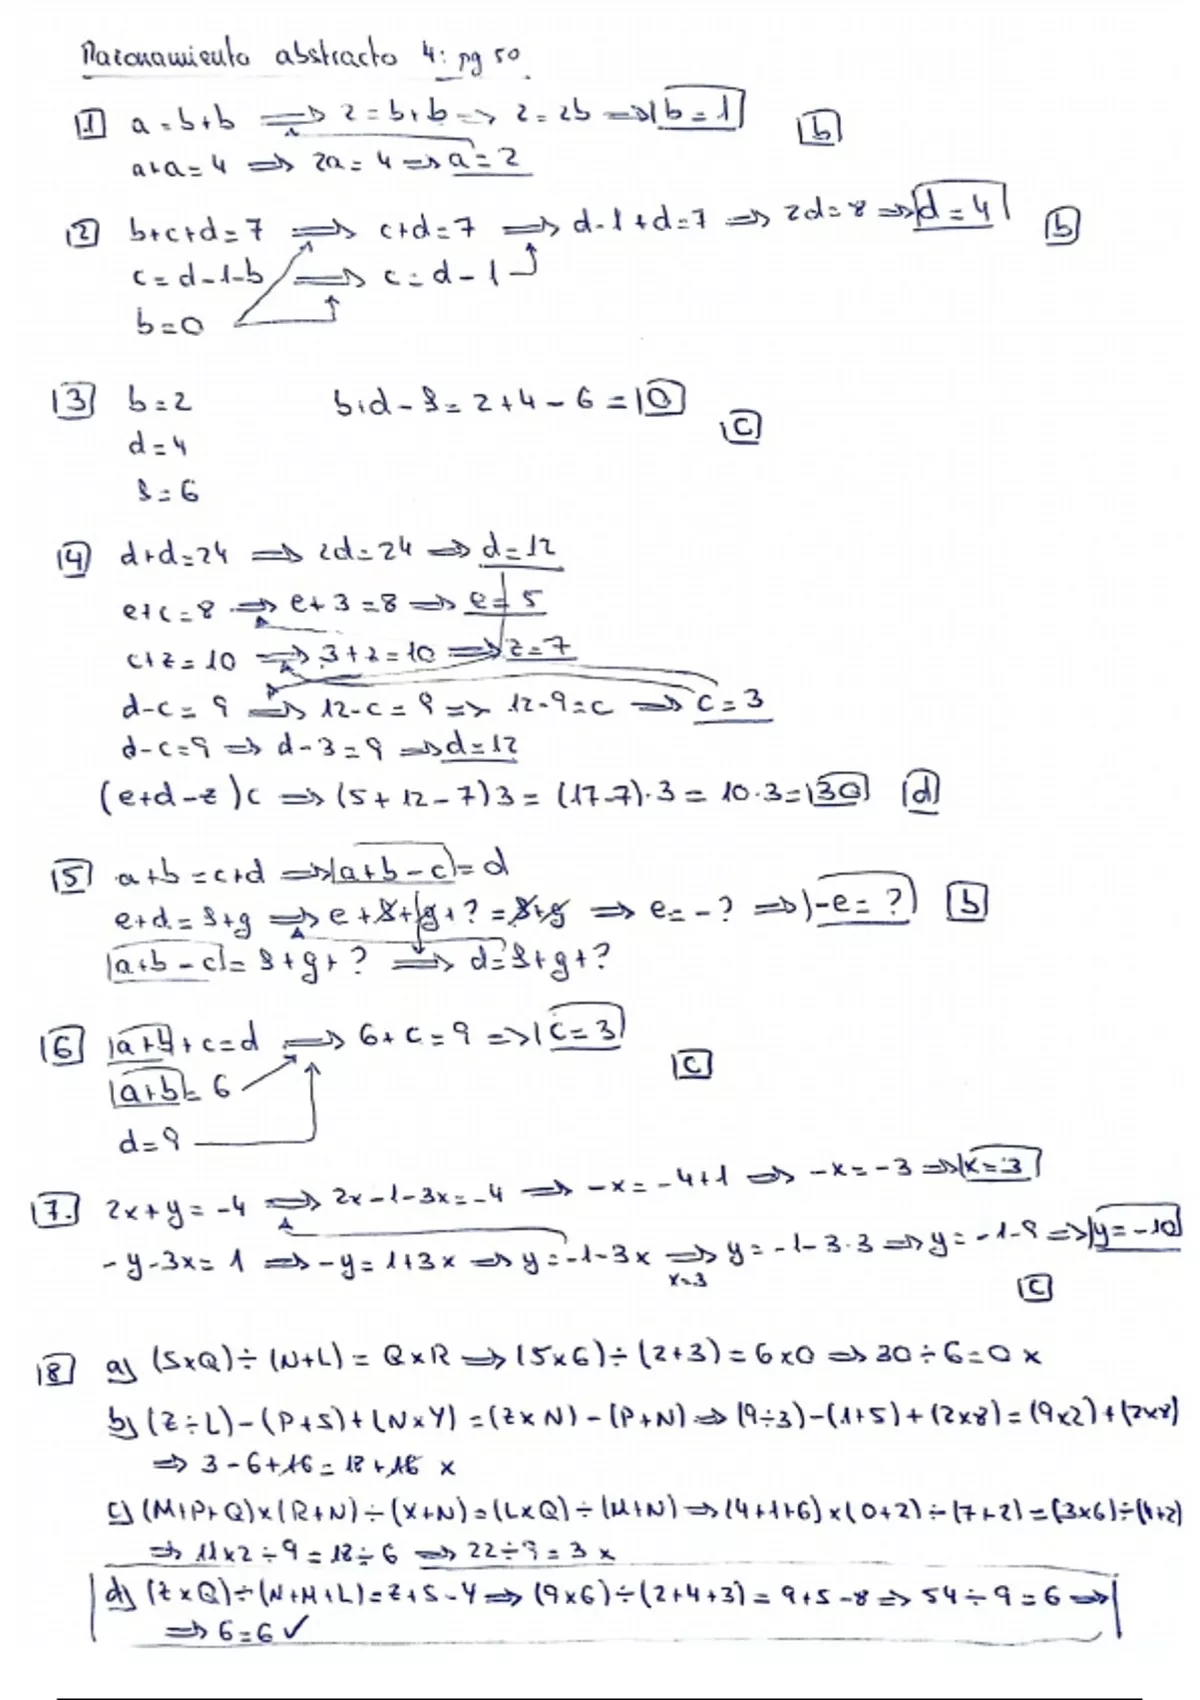 Razonamiento abstracto 4: pg 50
1 a = b+b ⟹ 2 = b+b ⟹ 2 = 2b ⟹ b = 1 b
a+a = 4 ⟹ 2a = 4 ⟹ a = 2
2 b+c+d = 7 ⟹ c+d = 7 ⟹ d-1+d = 7 ⟹ 2d = 8 ⟹ d = 4 b
c = d-1-b ⟹ c = d-1
b = 0
3 b = 2 b+d-f = 2+4-6 = 0 c
d = 4
f = 6
4 d+d = 24 ⟹ 2d = 24 ⟹ d = 12
e+c = 8 ⟹ e+3 = 8 ⟹ e = 5
c+z = 10 ⟹ 3+z = 10 ⟹ z = 7
d-c = 9 ⟹ 12-c = 9 ⟹ 12-9 = c ⟹ c = 3
d-c = 9 ⟹ d-3 = 9 ⟹ d = 12
(e+d-z)c ⟹ (5+12-7)3 = (17-7)·3 = 10·3 = 30 d
5 a+b = c+d ⟹ a+b-c = d
e+d = f+g ⟹ e+f+g+? = f+g ⟹ e = -? ⟹ -e = ? b
a+b-c = f+g+? ⟹ d = f+g+?
6 a+b+c = d ⟹ 6+c = 9 ⟹ c = 3 c
a+b = 6
d = 9
7. 2x+y = -4 ⟹ 2x-1-3x = -4 ⟹ -x = -4+1 ⟹ -x = -3 ⟹ x = 3
-y-3x = 1 ⟹ -y = 1+3x ⟹ y = -1-3x ⟹ y = -1-3·3 ⟹ y = -1-9 ⟹ y = -10
x=3
c
8 a) (S×Q)÷(N+L) = Q×R ⟹ (5×6)÷(2+3) = 6×0 ⟹ 30÷6 = 0 x
b) (Z÷L)-(P+S)+(N×Y) = (Z×N)-(P+N) ⟹ (9÷3)-(1+5)+(2×8) = (9×2)+(2×8)
⟹ 3-6+16 = 18+16 x
c) (M+P+Q)×(R+N)÷(X+N) = (L×Q)÷(M+N) ⟹ (4+1+6)×(0+2)÷(7+2) = (3×6)÷(4+2)
⟹ 11×2÷9 = 18÷6 ⟹ 22÷9 = 3 x
d) (Z×Q)÷(N+M+L) = Z+S-Y ⟹ (9×6)÷(2+4+3) = 9+5-8 ⟹ 54÷9 = 6 ⟹
⟹ 6 = 6 ✓